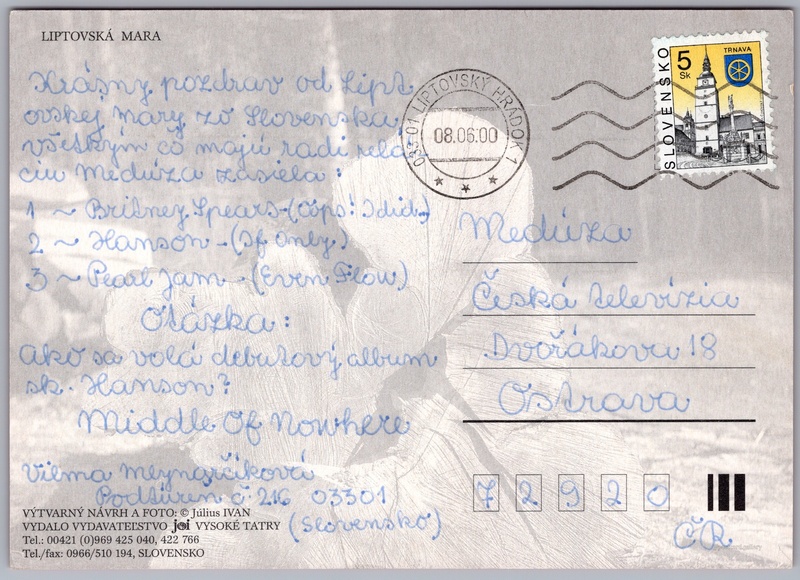 LIPTOVSKÁ MARA
Krásny pozdrav od Lipt
ovskej mary zo Slovenska
všetkým čo majú radi relá
ciu Medúza zasiela:
1 ~ Britney Spears - (Oops! I did..)
2 ~ Hanson - (If Only)
3 ~ Pearl Jam - (Even Flow)
Otázka:
Ako sa volá debutový album
sk. Hanson?
Middle Of Nowhere
Vilma Meynarčiková
Podtúreň č. 216 03301
(Slovensko)
VÝTVARNÝ NÁVRH A FOTO: © Július IVAN
VYDALO VYDAVATEĽSTVO joi VYSOKÉ TATRY
Tel.: 00421 (0)969 425 040, 422 766
Tel./fax: 0966/510 194, SLOVENSKO
033 01 LIPTOVSKÝ HRÁDOK 1
08.06.00
SLOVENSKO
5 Sk
TRNAVA
Medúza
Česká televízia
Dvořákova 18
Ostrava
72920
ČR